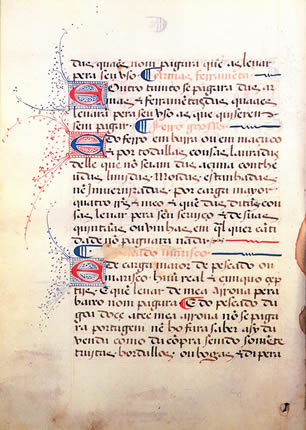 das quaes nom pagara que as levar
pera seu uso ¶ Armas ferramēta
E Outro tanto se pagara das ar
mas & ferramētas das quaaes
levara pera seu uso as que quiserem
sem pagar. ¶ Ferro grosso
E do ferro em barra ou em maçuco
& por todallas cousas lauradas
delle que nõ seiam das acima contheu
das limadas. Moidas. estanhadas
nē Invernizadas. por carga mayor
quatro rs̄ & meo & que das ditas cou
sas levar pera seu serviço & de suas
quintaãs ou vinhas em ql̃quer cãti
dade nõ pagara nada
pescado marisco
E de carga maior de pescado ou
marisco huũ real & cinquo çep
tijs. E que levar de mea arrova pera
baixo nom pagara ¶ E do pescado da
goa doçe atee mea arrova nõ se paga
ra portagem nē ho fara saber asy da
venda como da cõpra sendo somēte
truitas. bordallos. ou bogas & di pera